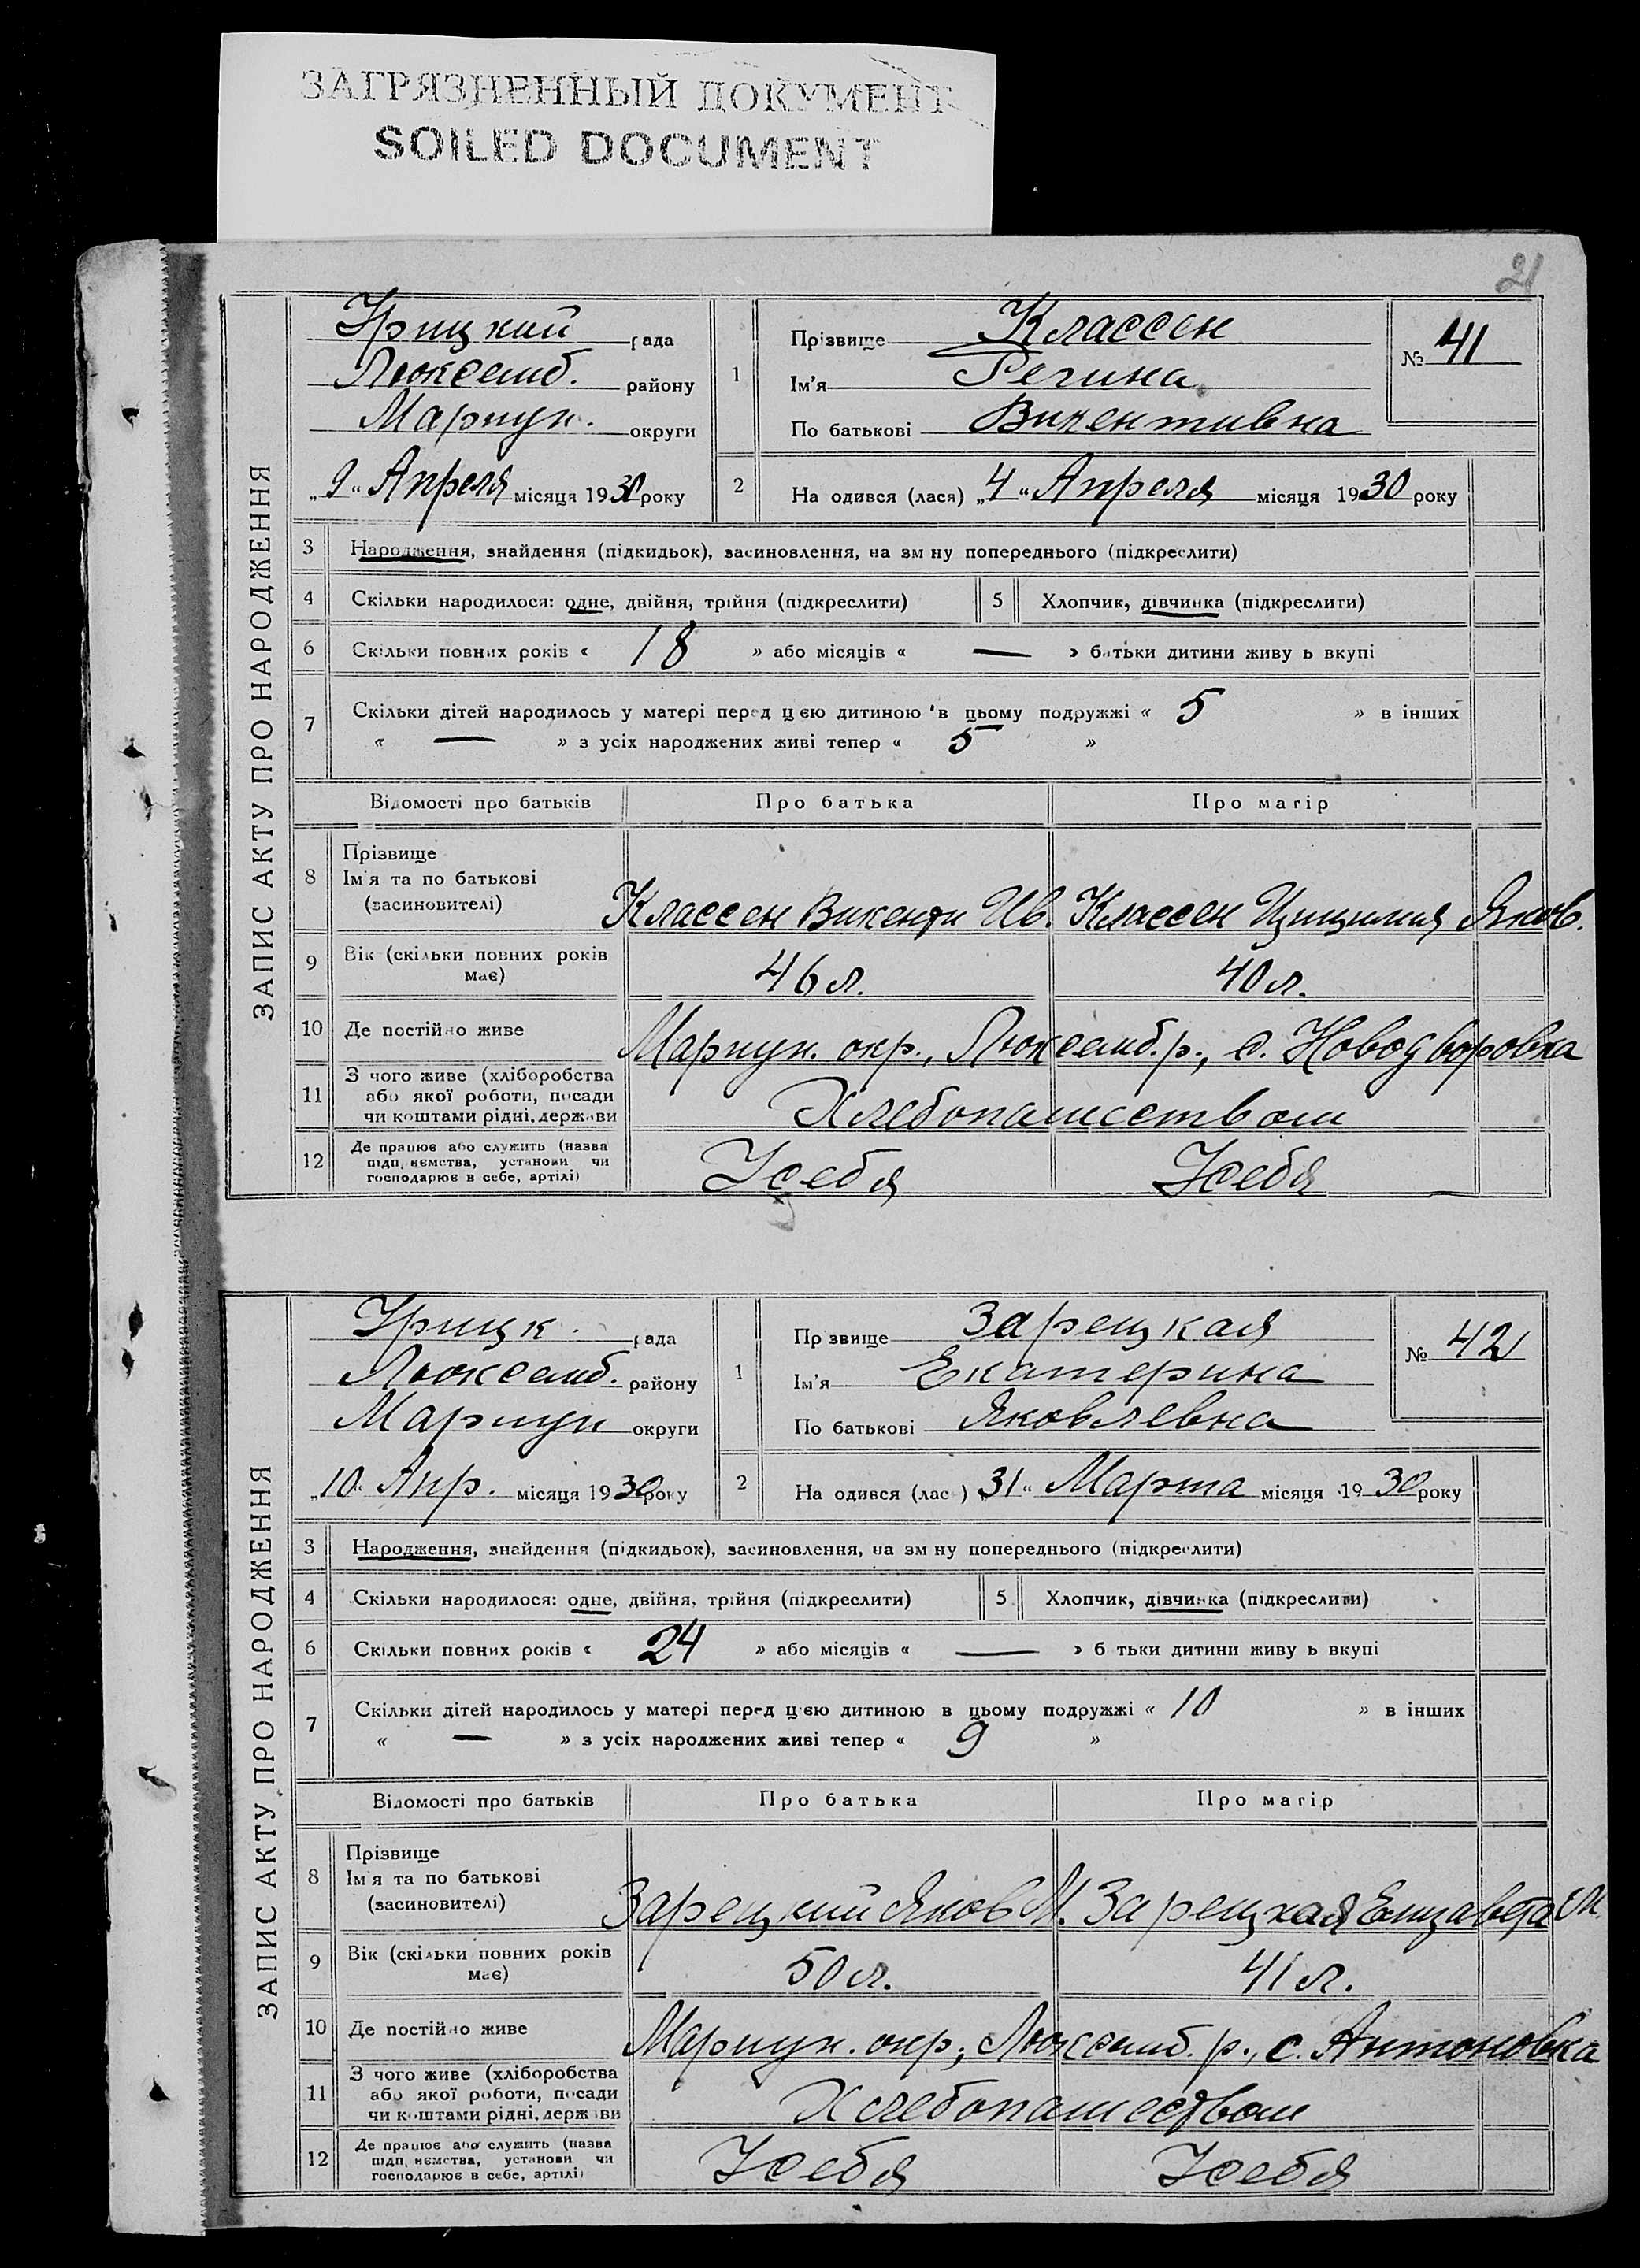 ЗАГРЯЗНЕННЫЙ ДОКУМЕНТ
SOILED DOCUMENT
21
ЗАПИС АКТУ ПРО НАРОДЖЕННЯ
Урицкой рада
Люксемб. району
Мариуп. округи
„9“ Апреля місяця 1930 року
1 Прізвище Классен
Ім'я Регина
По батькові Викентивна
№ 41
2 На одився (лася) „4“ Апреля місяця 1930 року
3 Народження, знайдення (підкидьок), засиновлення, на зм ну попереднього (підкреслити)
4 Скільки народилося: одне, двійня, трійня (підкреслити) 5 Хлопчик, дівчинка (підкреслити)
6 Скільки повних років « 18 » або місяців « — » батьки дитини живу ь вкупі
7 Скільки дітей народилось у матері перед цєю дитиною в цьому подружжі « 5 » в інших
« — » з усіх народжених живі тепер « 5 »
Відомості про батьків Про батька Про матір
8 Прізвище
Ім'я та по батькові
(засиновителі)
Классен Викенти Ив. Классен Цицилия Яков.
9 Вік (скільки повних років
має)
46 л. 40 л.
10 Де постійно живе Мариуп. окр., Люксемб. р., с. Новодворовка
11 З чого живе (хліборобства
або якої роботи, посади
чи коштами рідні, держави
Хлебопашеством
12 Де працює або служить (назва
підп, ємства, установи чи
господарює в себе, артілі)
У себя У себя
ЗАПИС АКТУ ПРО НАРОДЖЕННЯ
Урицк. рада
Люксемб. району
Мариуп округи
„10“ Апр. місяця 1930 року
1 Пр звище Зарецкая
Ім'я Екатерина
По батькові Яковлевна
№ 42
2 На одився (лас ) „31“ Марта місяця 1930 року
3 Народження, знайдення (підкидьок), засиновлення, на зм ну попереднього (підкреслити)
4 Скільки народилося: одне, двійня, трійня (підкреслити) 5 Хлопчик, дівчинка (підкреслити)
6 Скільки повних років « 24 » або місяців « — » б тьки дитини живу ь вкупі
7 Скільки дітей народилось у матері перед цєю дитиною в цьому подружжі « 10 » в інших
« — » з усіх народжених живі тепер « 9 »
Відомості про батьків Про батька Про матір
8 Прізвище
Ім'я та по батькові
(засиновителі)
Зарецкий Яков М. Зарецкая Елизавета
9 Вік (скільки повних років
має)
50 л. 41 л.
10 Де постійно живе Мариуп. окр., Люксемб. р., с. Антоновка
11 З чого живе (хліборобства
або якої роботи, посади
чи коштами рідні, держави
Хлебопашеством
12 Де працює або служить (назва
підп, ємства, установи чи
господарює в себе, артілі)
У себя У себя